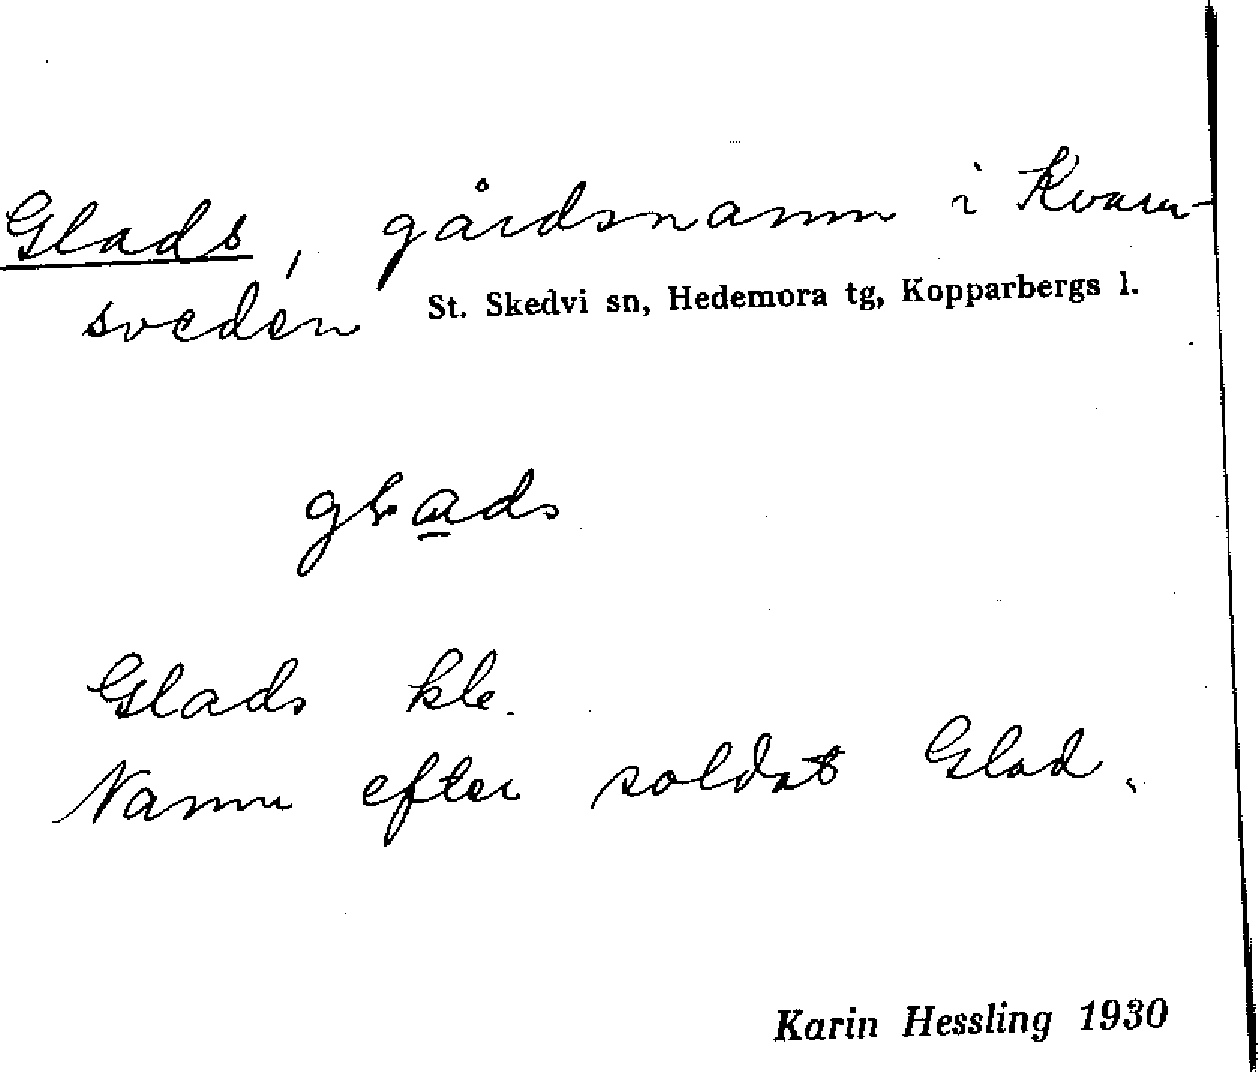 Glads, gårdsnamn i Kvarn-
sveden St. Skedvi sn, Hedemora tg, Kopparbergs l.
glads
Glads kle.
Namn efter soldat Glad.
Karin Hessling 1930